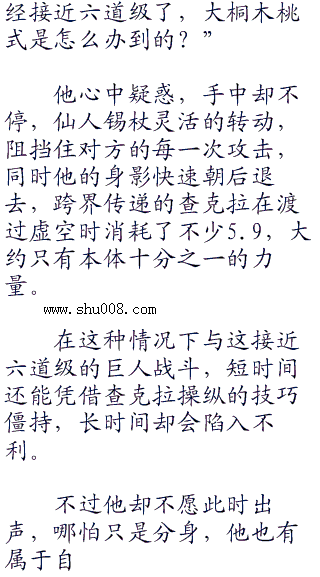 经接近六道级了，大桐木桃
式是怎么办到的？”
他心中疑惑，手中却不
停，仙人锡杖灵活的转动，
阻挡住对方的每一次攻击，
同时他的身影快速朝后退
去，跨界传递的查克拉在渡
过虚空时消耗了不少5.9，大
约只有本体十分之一的力
量。
www.shu008.com
在这种情况下与这接近
六道级的巨人战斗，短时间
还能凭借查克拉操纵的技巧
僵持，长时间却会陷入不
利。
不过他却不愿此时出
声，哪怕只是分身，他也有
属于自